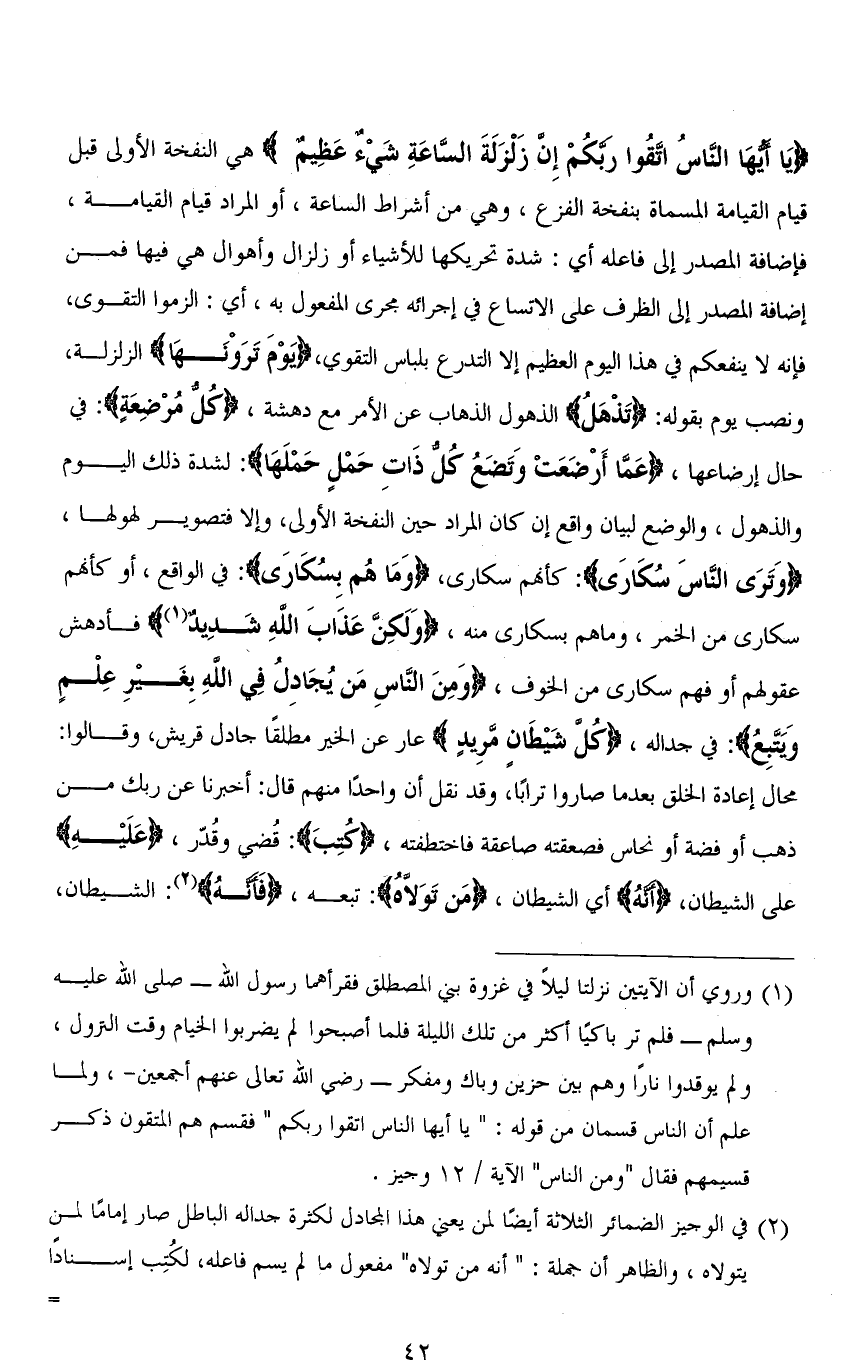 ﴿يَا أَيُّهَا النَّاسُ اتَّقُوا رَبَّكُمْ إِنَّ زَلْزَلَةَ السَّاعَةِ شَيْءٌ عَظِيمٌ ﴾ هي النفخة الأولى قبل
قيام القيامة المسماة بنفخة الفزع ، وهي من أشراط الساعة ، أو المراد قيام القيامـــة ،
فإضافة المصدر إلى فاعله أي : شدة تحريكها للأشياء أو زلزال وأهوال هي فيها فمـــن
إضافة المصدر إلى الظرف على الاتساع في إجرائه مجرى المفعول به ، أي : الزموا التقـوى،
فإنه لا ينفعكم في هذا اليوم العظيم إلا التدرع بلباس التقوي، ﴿يَوْمَ تَرَوْنَـــهَا﴾ الزلزلــة،
ونصب يوم بقوله: ﴿تَذْهَلُ﴾ الذهول الذهاب عن الأمر مع دهشة ، ﴿كُلُّ مُرْضِعَةٍ﴾: في
حال إرضاعها ، ﴿عَمَّا أَرْضَعَتْ وَتَضَعُ كُلُّ ذَاتِ حَمْلٍ حَمْلَهَا﴾: لشدة ذلك اليـــوم
والذهول ، والوضع لبيان واقع إن كان المراد حين النفخة الأولى، وإلا فتصويـــر لهولهـا ،
﴿وَتَرَى النَّاسَ سُكَارَى﴾: كأنهم سكارى، ﴿وَمَا هُم بِسُكَارَى﴾: في الواقع ، أو كأنهم
سكارى من الخمر ، وماهم بسكارى منه ، ﴿وَلَكِنَّ عَذَابَ اللَّهِ شَـــدِيدٌ(١)﴾ فــأدهش
عقولهم أو فهم سكارى من الخوف ، ﴿وَمِنَ النَّاسِ مَن يُجَادِلُ فِي اللَّهِ بِغَـــيْرِ عِلْـــمٍ
وَيَتَّبِعُ﴾: في جداله ، ﴿كُلَّ شَيْطَانٍ مَّرِيدٍ ﴾ عار عن الخير مطلقًا جادل قريش، وقــالوا:
محال إعادة الخلق بعدما صاروا ترابًا، وقد نقل أن واحدًا منهم قال: أخبرنا عن ربك مـــن
ذهب أو فضة أو نحاس فصعقته صاعقة فاختطفته ، ﴿كُتِبَ﴾: قُضي وقُدّر ، ﴿عَلَيْـــهِ﴾
على الشيطان، ﴿أَنَّهُ﴾ أي الشيطان ، ﴿مَن تَوَلاَّهُ﴾: تبعــه ، ﴿فَأَنَّــهُ﴾(٢): الشــيطان،
(١) وروي أن الآيتين نزلتا ليلاً في غزوة بني المصطلق فقرأهما رسول الله ـــ صلى الله عليــه
وسلم ـــ فلم تر باكيًا أكثر من تلك الليلة فلما أصبحوا لم يضربوا الخيام وقت النزول ،
ولم يوقدوا نارًا وهم بين حزين وباك ومفكر ـــ رضي الله تعالى عنهم أجمعين- ، ولمــا
علم أن الناس قسمان من قوله : " يا أيها الناس اتقوا ربكم " فقسم هم المتقون ذكـــر
قسيمهم فقال "ومن الناس" الآية / ١٢ وجيز .
(٢) في الوجيز الضمائر الثلاثة أيضًا لمن يعني هذا المجادل لكثرة جداله الباطل صار إمامًا لمـن
يتولاه ، والظاهر أن جملة : " أنه من تولاه" مفعول ما لم يسم فاعله، لكُتِب إســـنادًا
=
٤٢